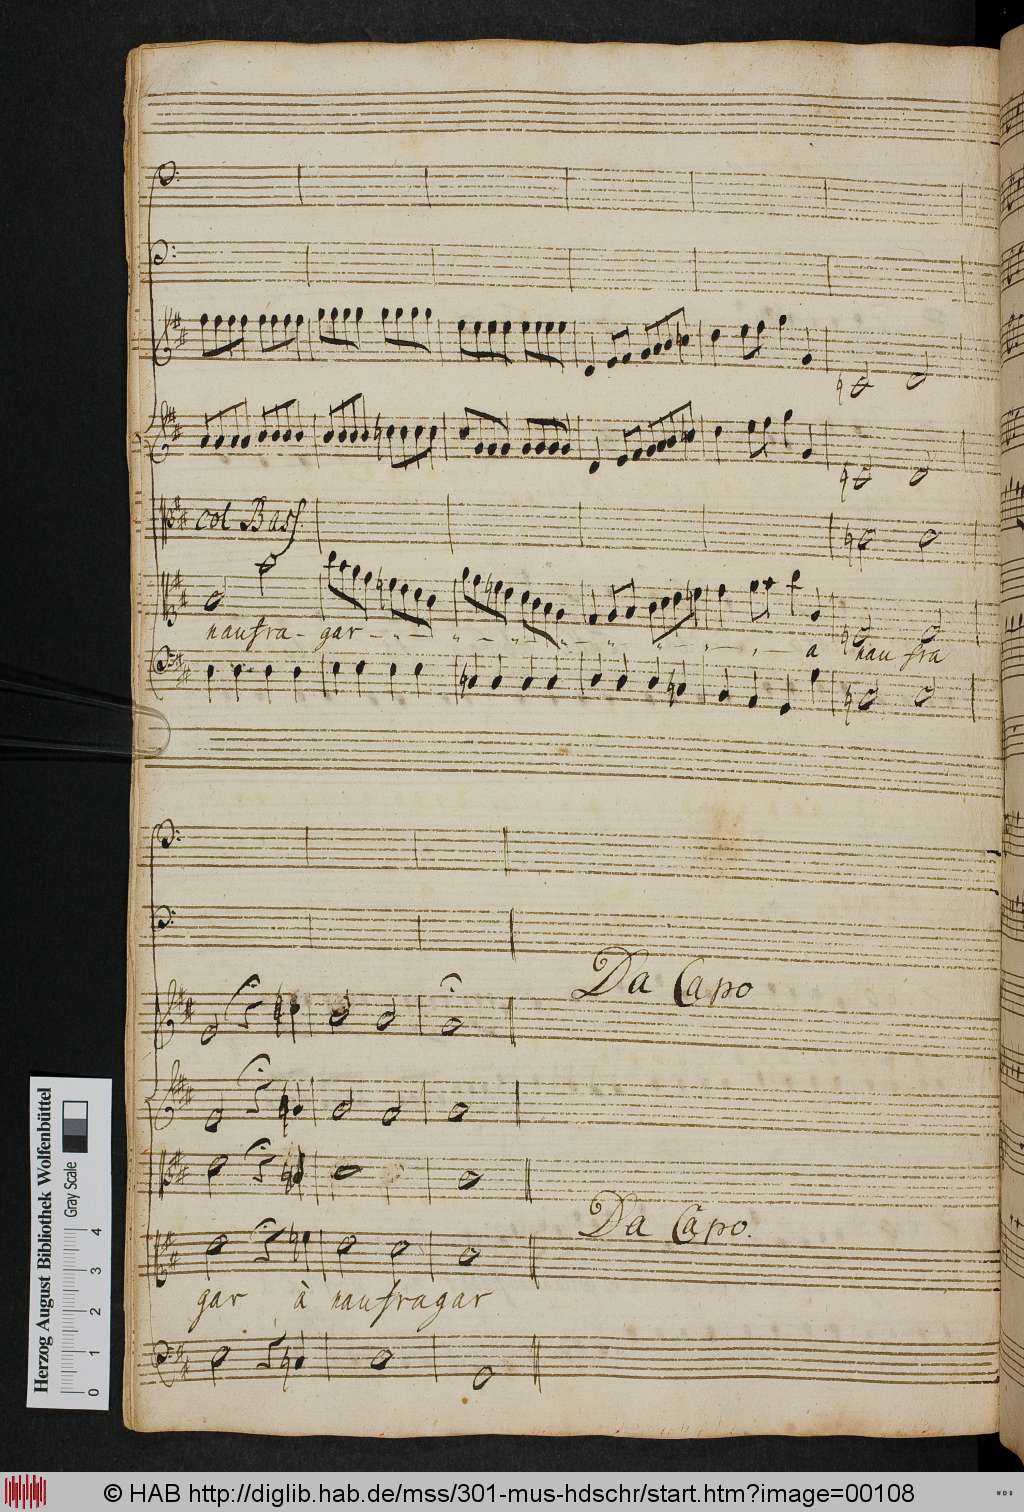 col Bass.
naufra - gar - - - - - - - - - a nau fra
Da Capo
Da Capo.
gar à naufragar
Herzog August Bibliothek Wolfenbüttel
Gray Scale
0 1 2 3 4
© HAB http://diglib.hab.de/mss/301-mus-hdschr/start.htm?image=00108